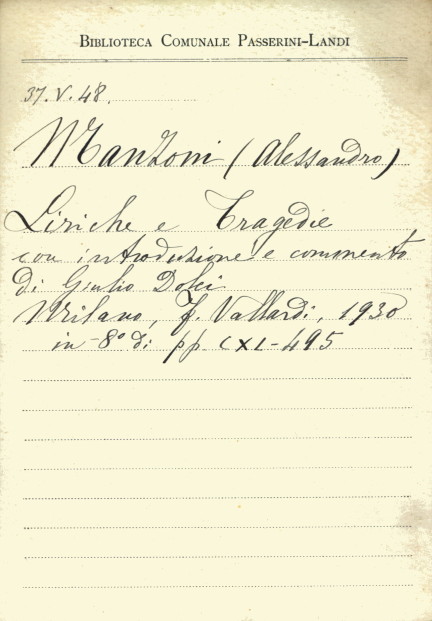 BIBLIOTECA COMUNALE PASSERINI-LANDI
37.V.48.
Manzoni (Alessandro)
Liriche e Tragedie
con introduzione e commento
di Giulio Dolci
Milano, F. Vallardi, 1930
in-8° di pp. CXL-495